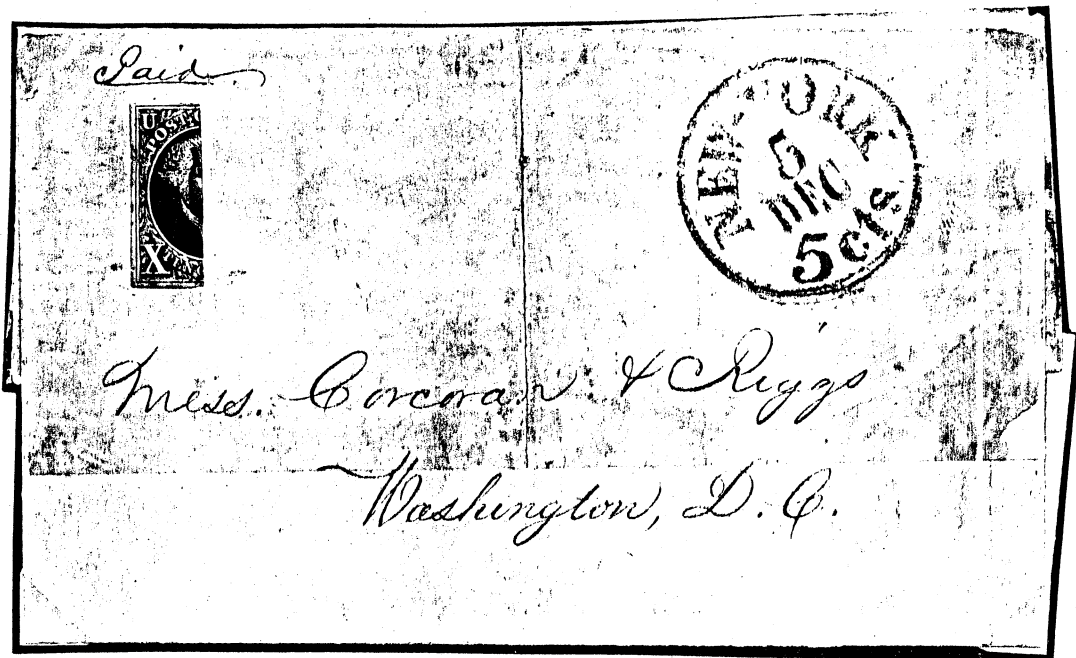 Paid
U
POST
X
NEW-YORK
5
DEC
5cts
Mess. Corcoran & Riggs
Washington, D. C.